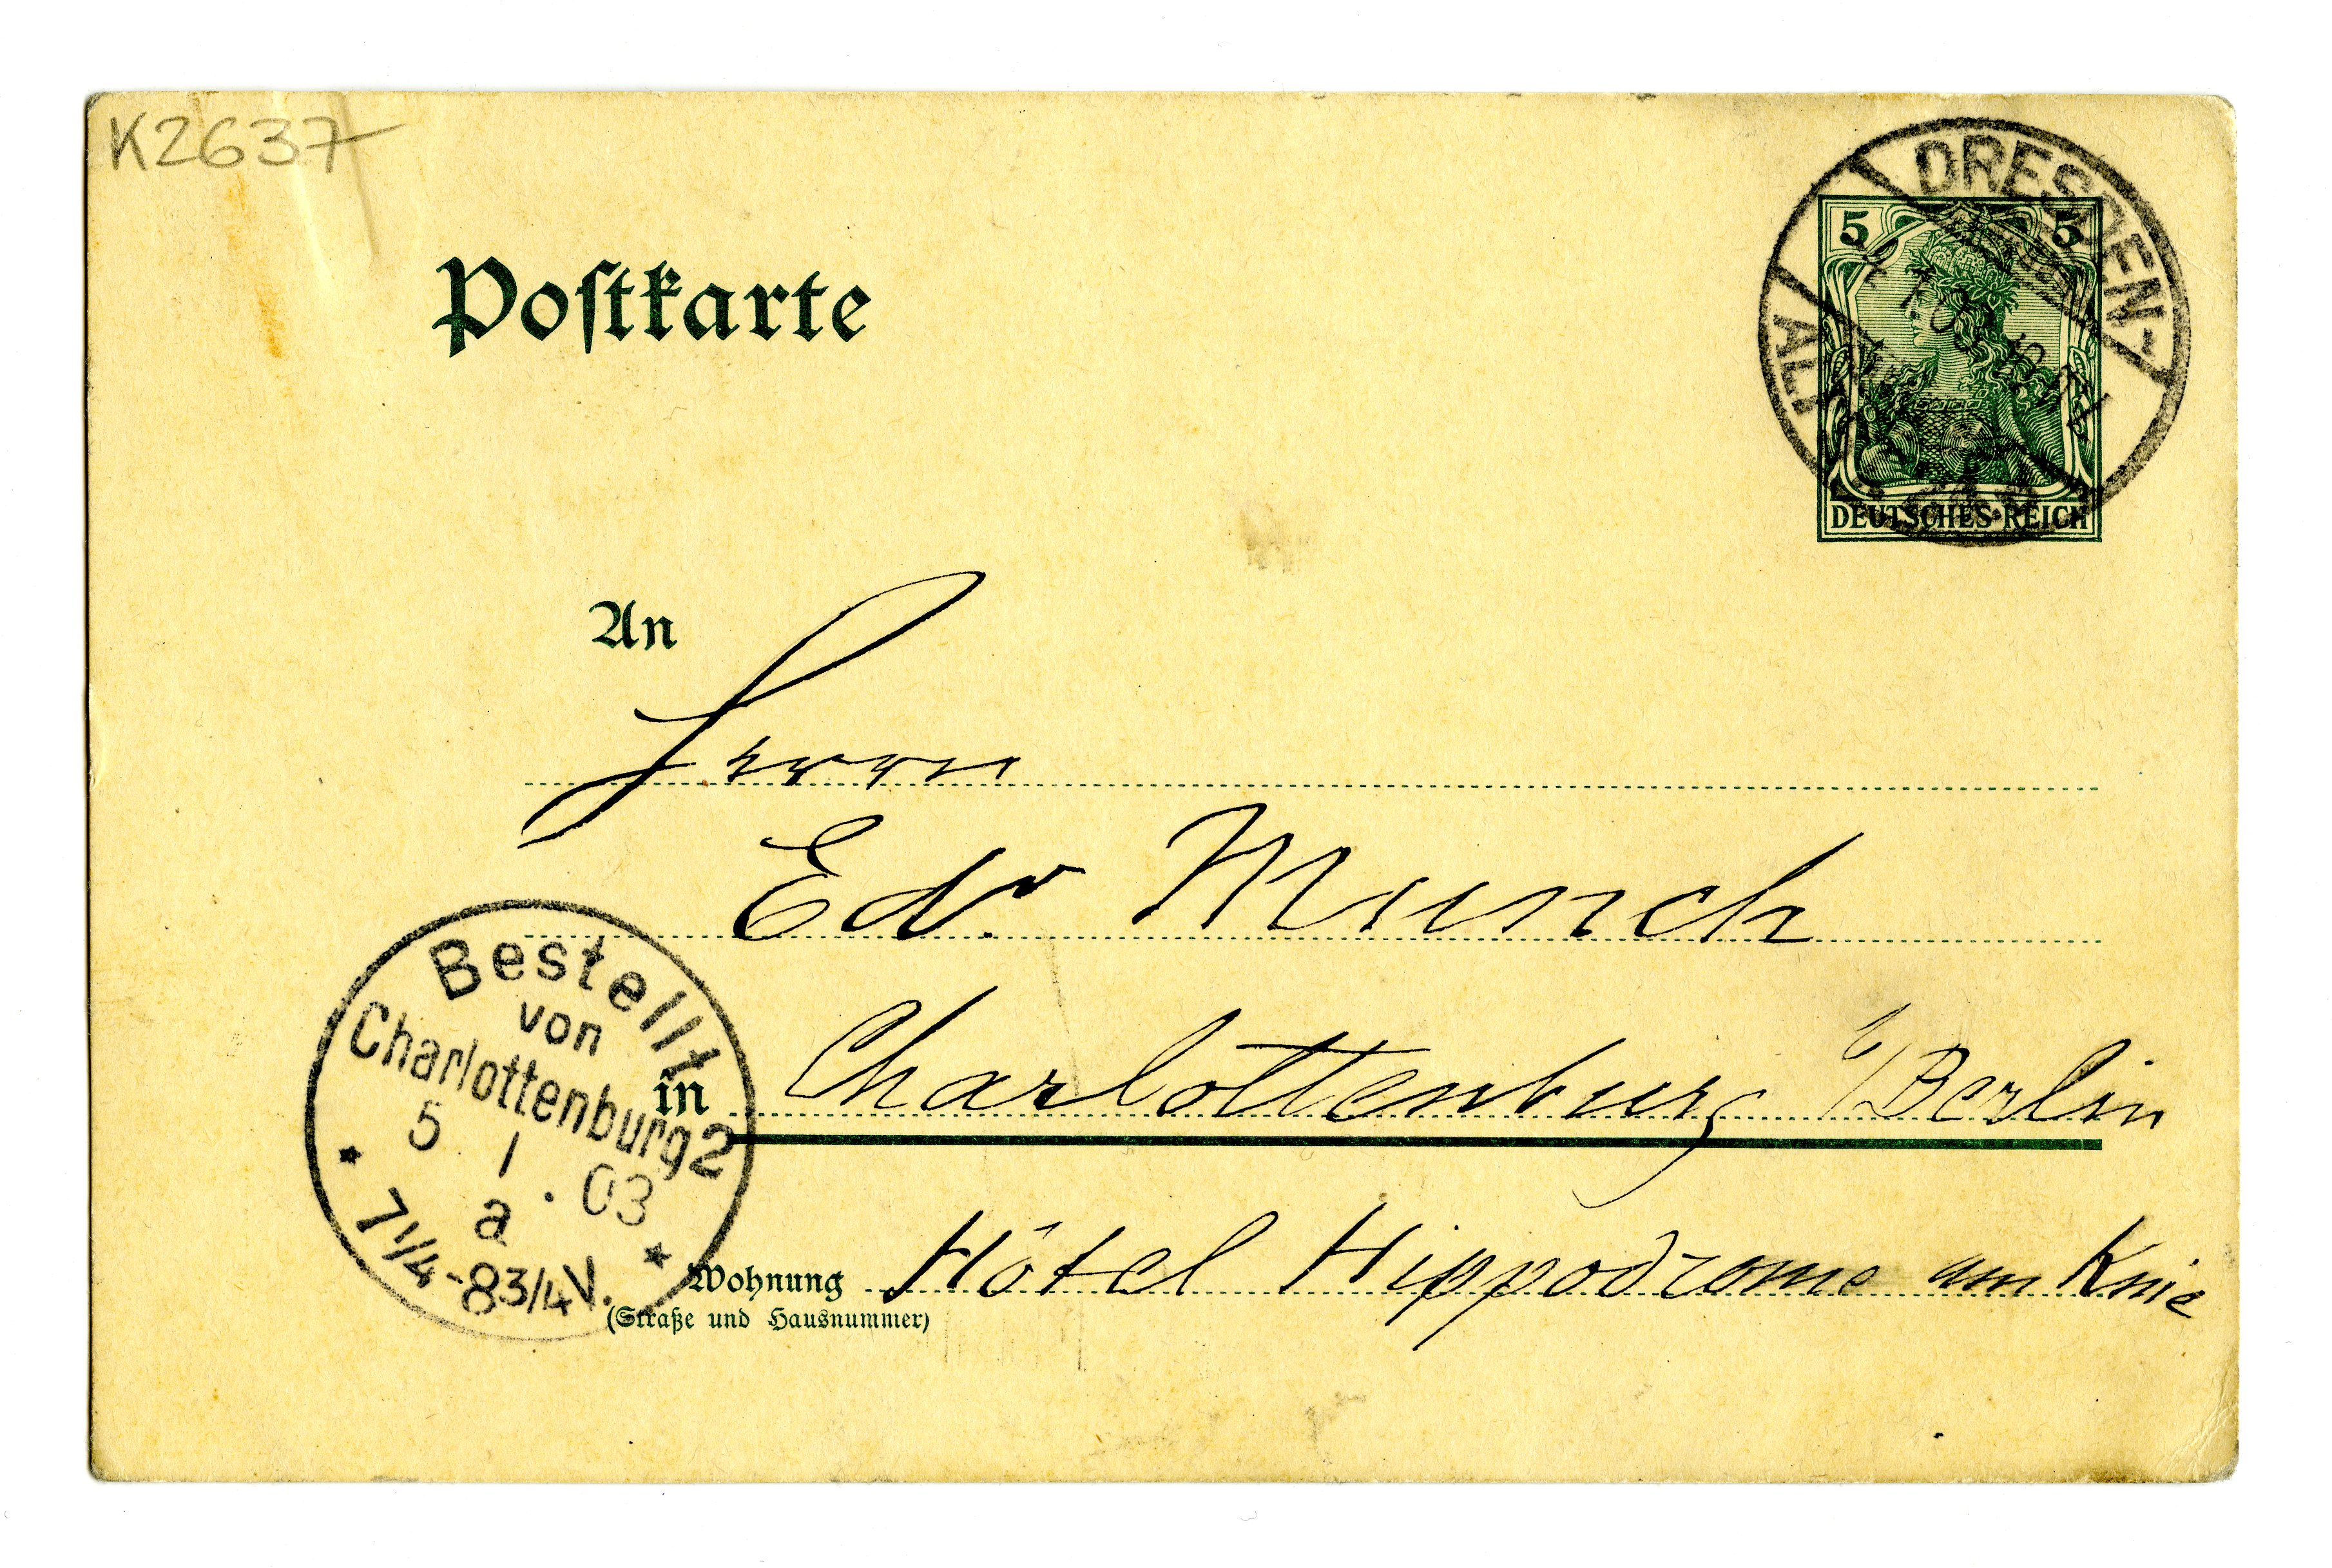 K2637
DRESDEN-
ALTST.
5 5
DEUTSCHES REICH
Postkarte
An
Herrn
Edv. Munch
in Charlottenburg b/Berlin
Wohnung Hôtel Hippodrome am Knie
(Straße und Hausnummer)
Bestellt
von
Charlottenburg 2
5 1 . 03
a
7 1/4-8 3/4 V.